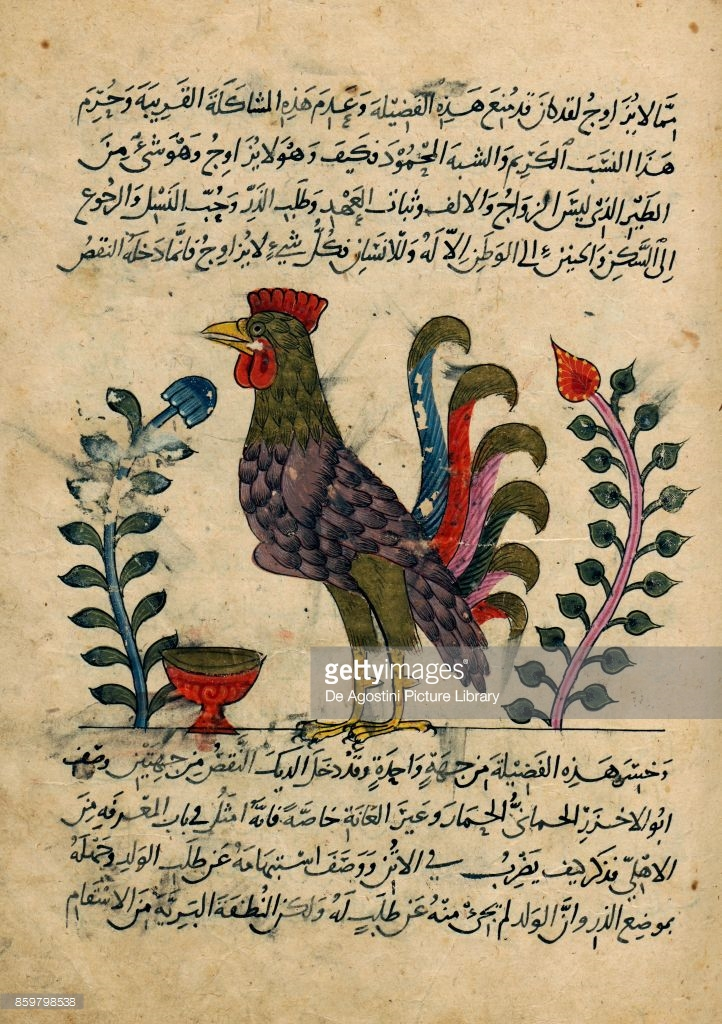 مما لا يزاوج لقد كان قد منع هذه الفضيلة وعدم هذه المشاكلة القريبة وحرم
هذا النسب الكريم والشبه المحمود فكيف وهو لا يزاوج وهو شيء من
الطير الذي ليس الزواج والالف وثبات العهد وطلب الذرء وحب النسل والرجوع
الى السكن والحنين الى الوطن الا له وللانسان وكل شيء لا يزاوج فانما دخله النقص
gettyimages
De Agostini Picture Library
وخسر هذه الفضيلة من جهة واحدة وقد دخل الديك النقص من جهتين وصف
ابو الاخزر الحماني الحمار وعير العانة خاصة فانه امثل في باب المعرفة من
الاهلي فذكر كيف يضرب في الاتن ووصف استبهامه عن طلب الولد وجهله
بموضع الذرو وان الولد لم يجئ منه عن طلب له ولكن النطفة البرية من الاسقام
859798538